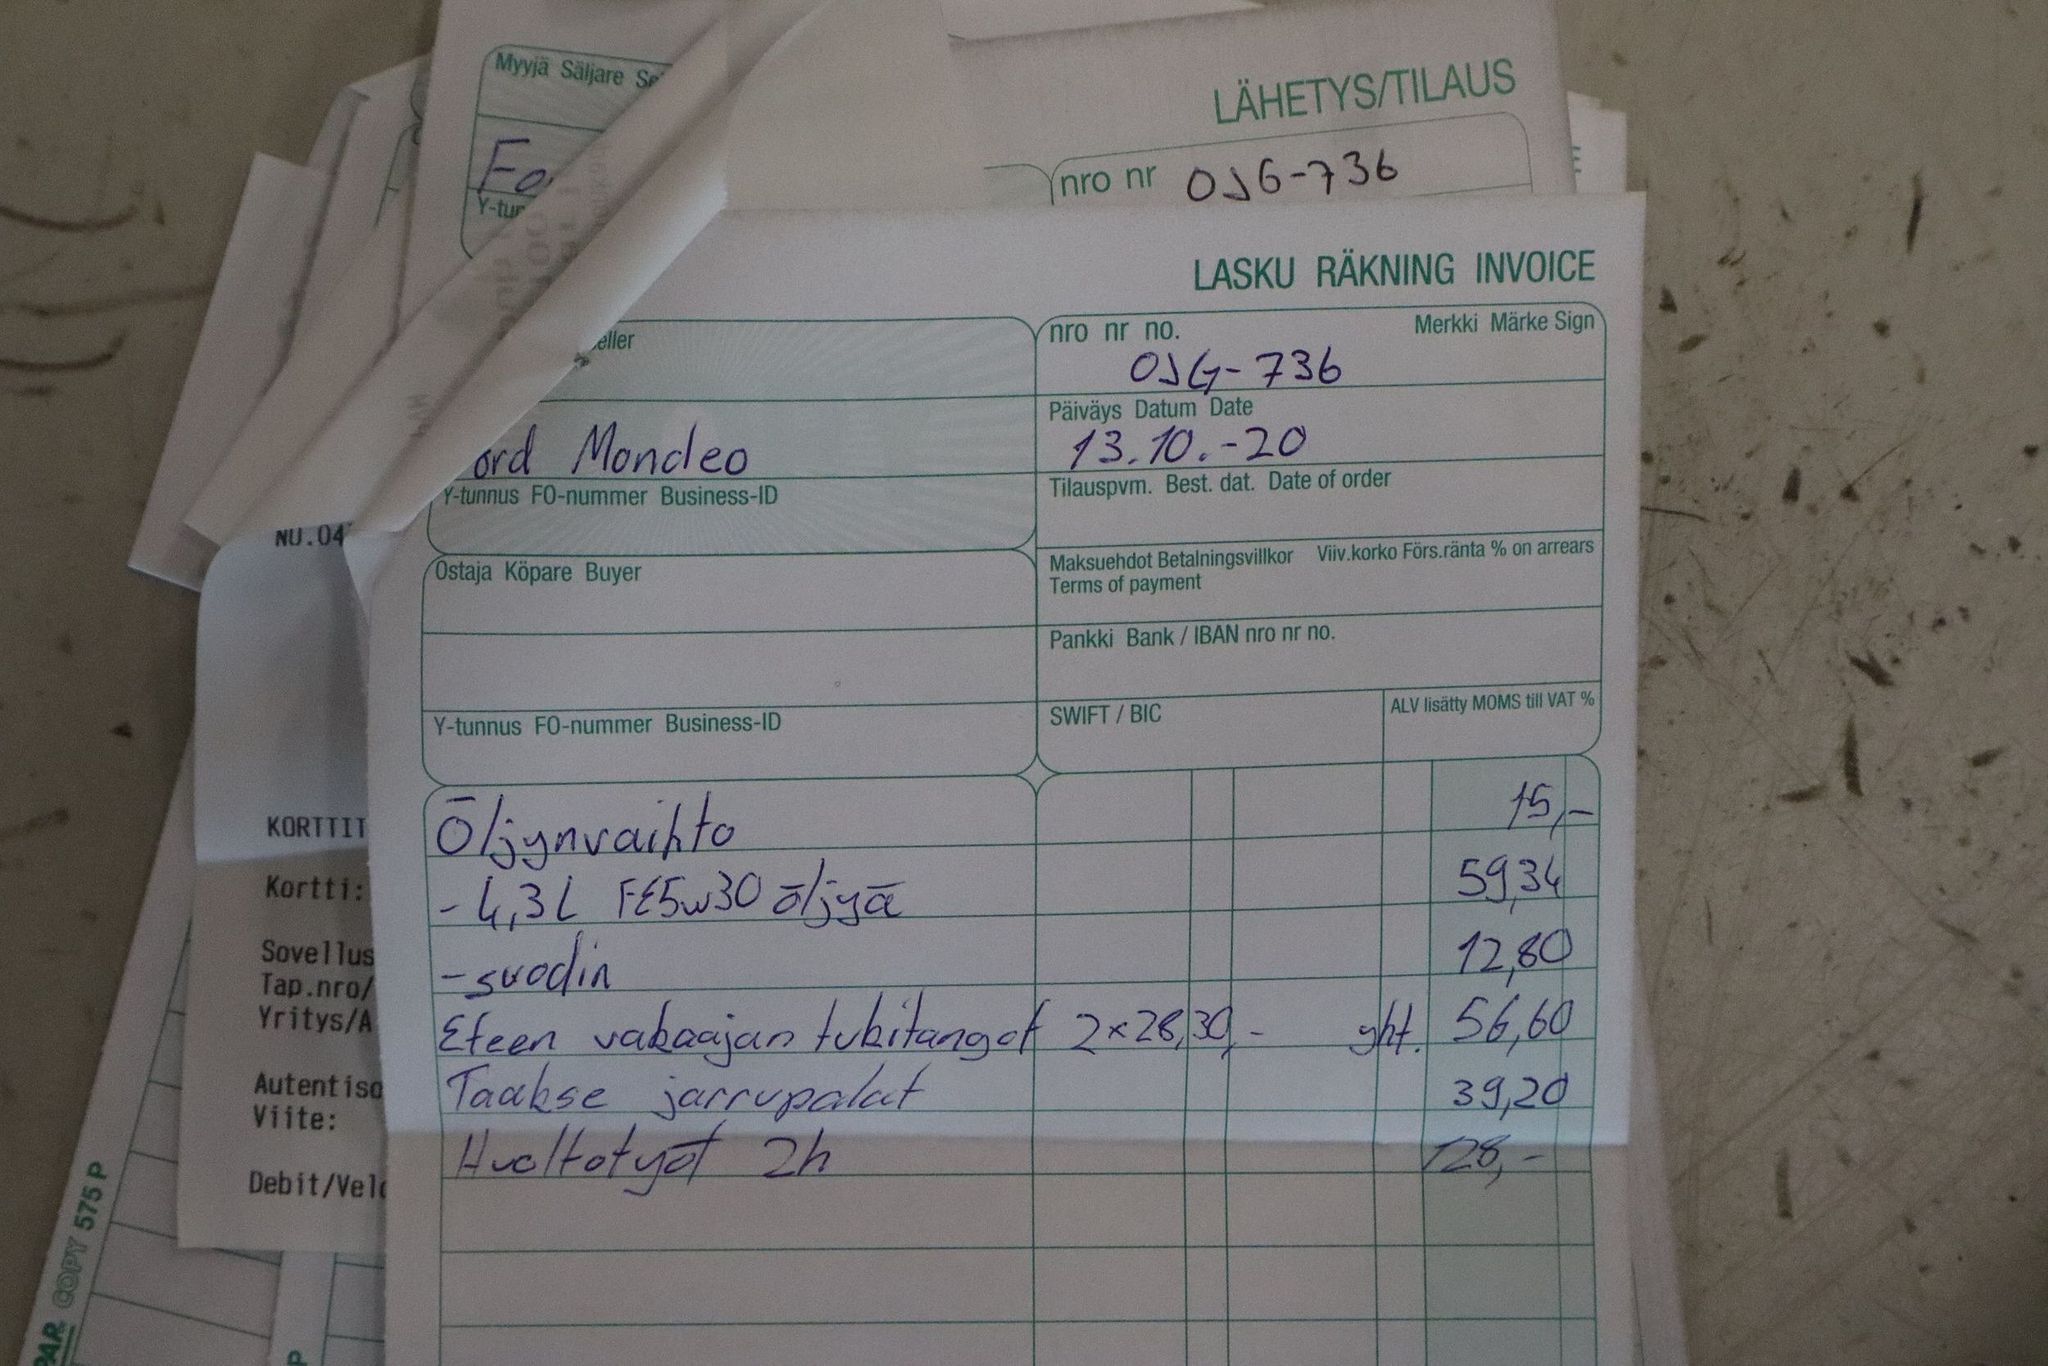 Myyjä Säljare Se
Fo
Y-tun
LÄHETYS/TILAUS
nro nr OJG-736
LASKU RÄKNING INVOICE
eller
ord Mondeo
Y-tunnus FO-nummer Business-ID
nro nr no. Merkki Märke Sign
OJG-736
Päiväys Datum Date
13.10.-20
Tilauspvm. Best. dat. Date of order
Ostaja Köpare Buyer
Maksuehdot Betalningsvillkor Viiv.korko Förs.ränta % on arrears
Terms of payment
Pankki Bank / IBAN nro nr no.
Y-tunnus FO-nummer Business-ID
SWIFT / BIC
ALV lisätty MOMS till VAT %
Öljynvaihto 15,-
- 4,3L FE5w30 öljyä 59,34
- suodin 12,80
Eteen vakaajan tukitangot 2x28,30,- yht. 56,60
Taakse jarrupalat 39,20
Huoltotyöt 2h 128,-
NU.04
KORTTIT
Kortti:
Sovellus
Tap.nro/
Yritys/A
Autentiso
Viite:
Debit/Velo
PAR COPY 575 P
P